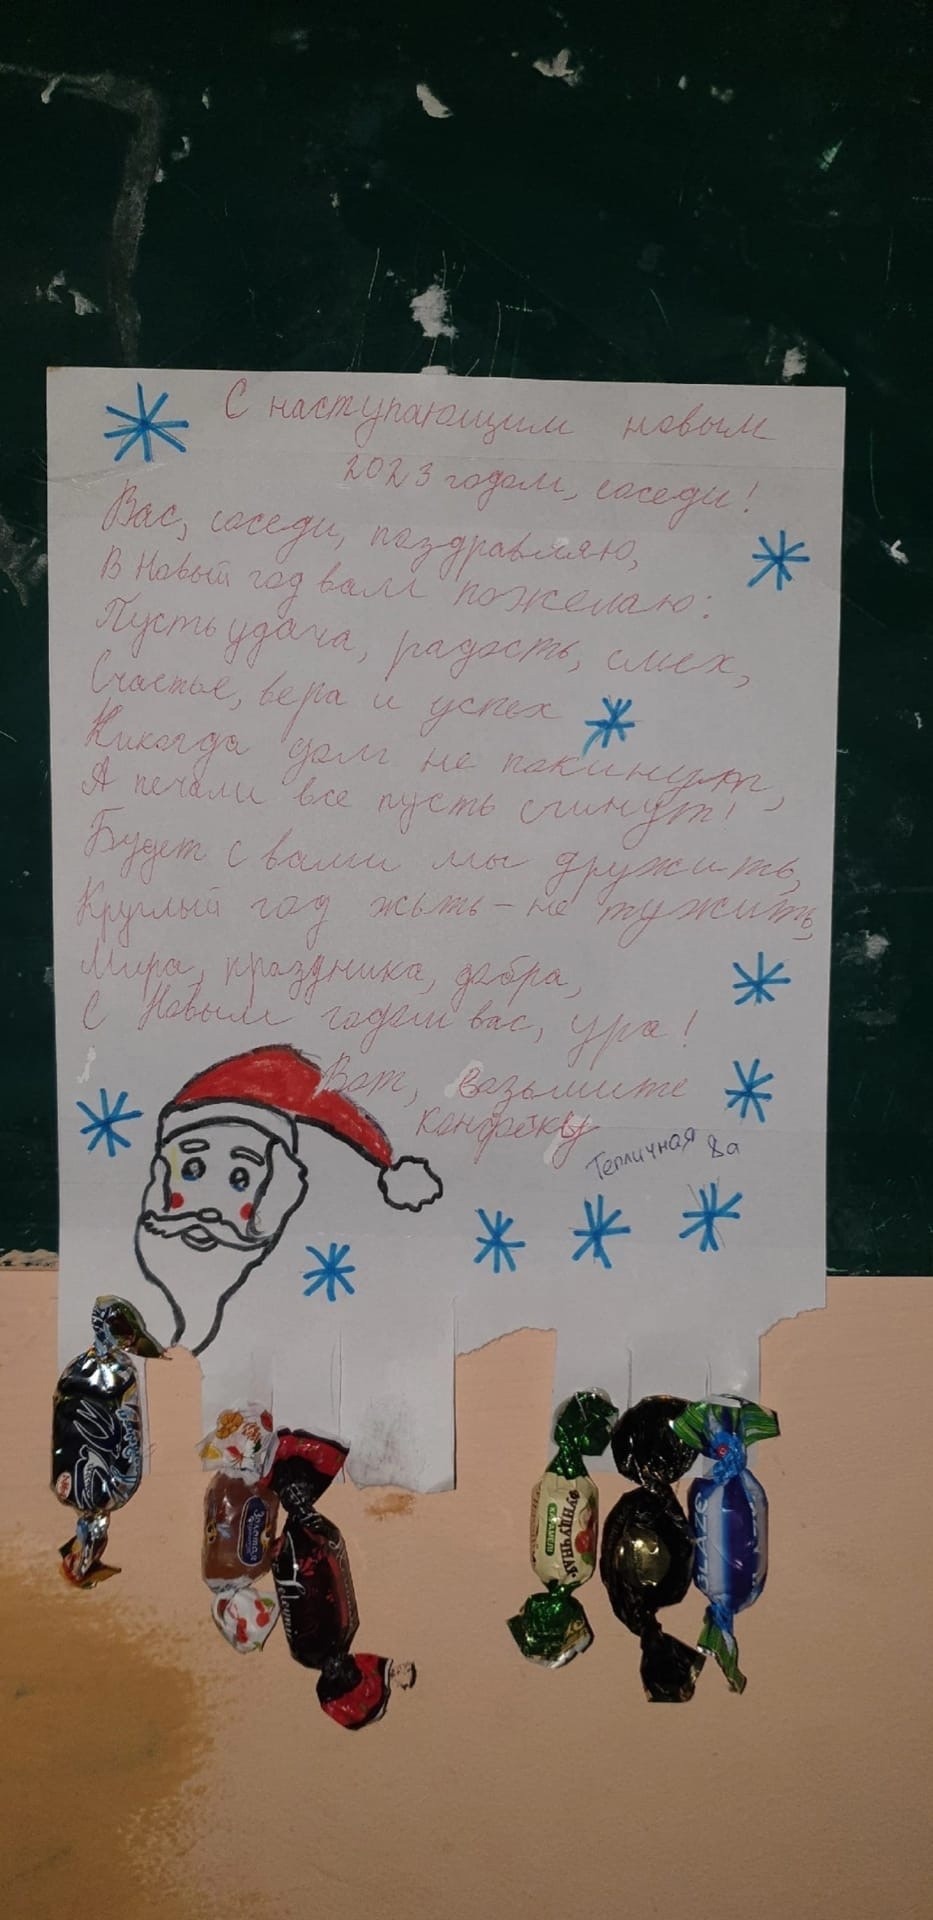 С наступающим новым
2023 годом, соседи!
Вас, соседи, поздравляю,
В Новый год вам пожелаю:
Пусть удача, радость, смех,
Счастье, вера и успех
Никогда дом не покинут,
А печали все пусть сгинут!
Будет с вами мы дружить,
Круглый год жыть - не тужить,
Мира, праздника, добра,
С Новым годом вас, ура!
Вот, возьмите
конфетку
Тепличная 8а
Золотая
ФУНДУЧНАЯ
КАРАМЕЛЬ
GLAZE